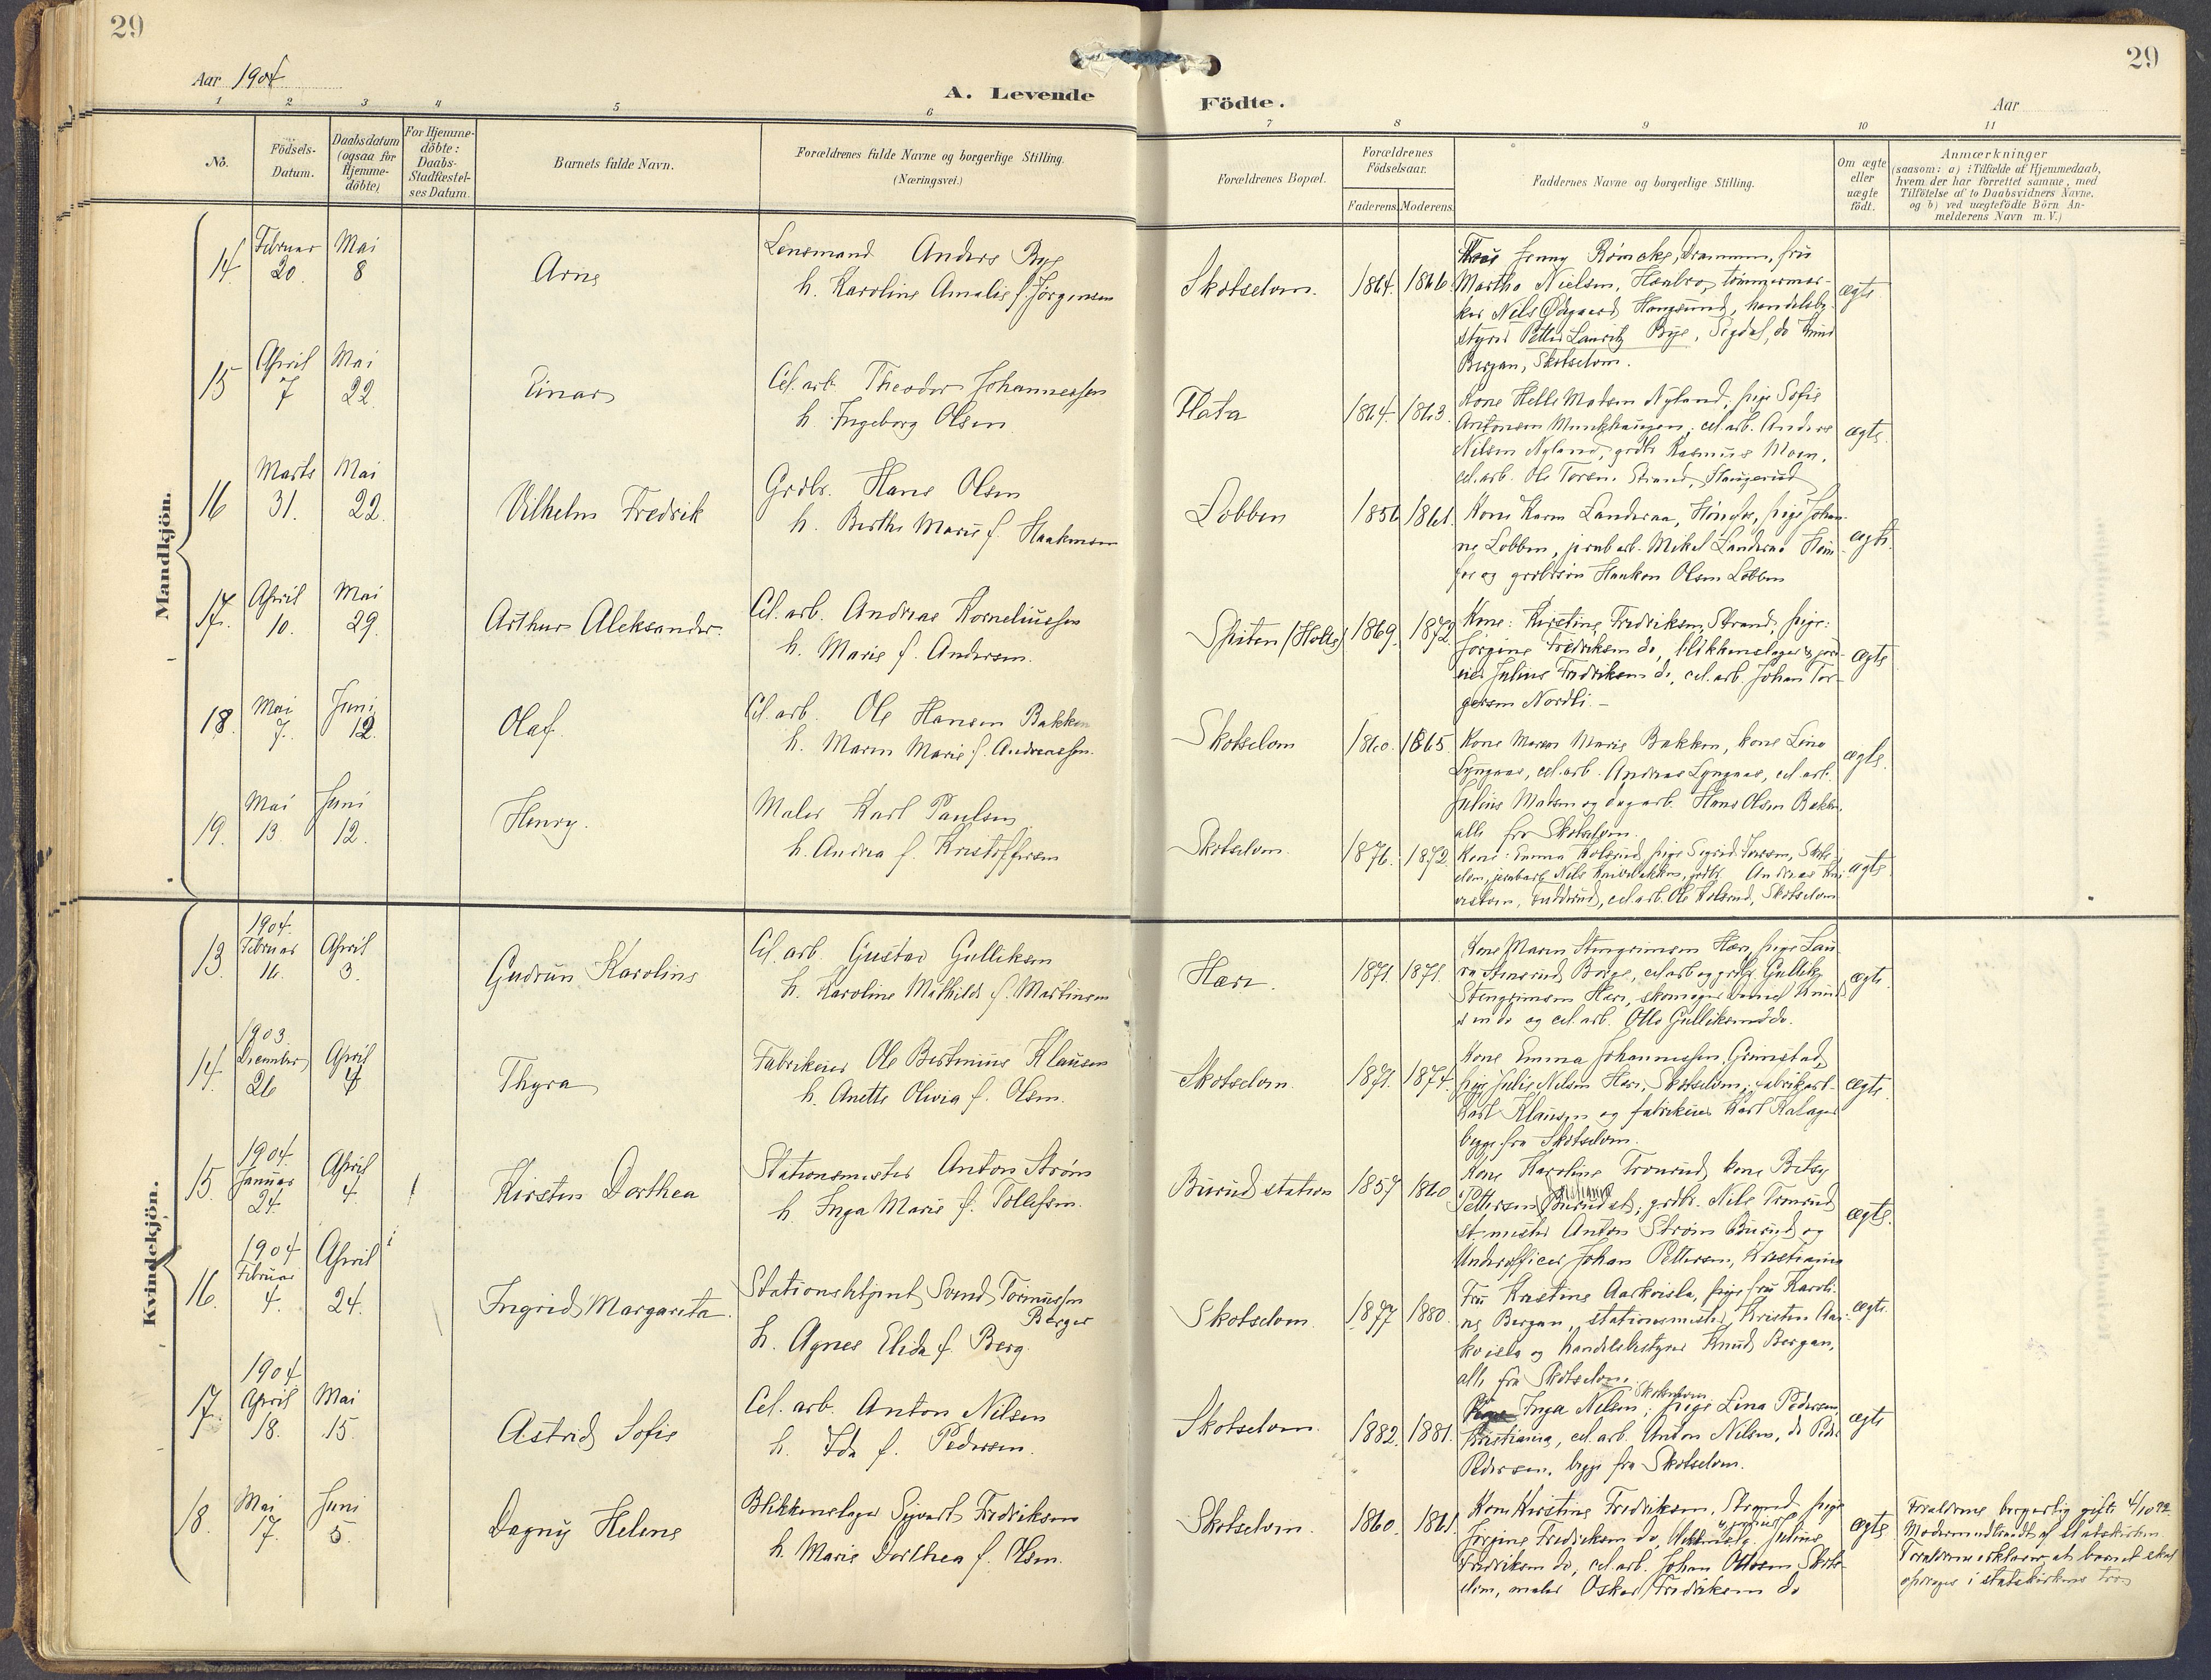 29
29
Aar 1904
A. Levende
Födte.
Aar
1 2 3 4 5 6 7 8 9 10 11
No.
Födsels-
Datum.
Daabsdatum
(ogsaa for
Hjemme-
döbte)
For Hjemme-
döbte:
Daabs-
Stadfæstel-
ses Datum.
Barnets fulde Navn.
Forældrenes fulde Navne og borgerlige Stilling.
(Næringsvei.)
Forældrenes Bopæl.
Forældrenes
Födselsaar.
Faderens. Moderens.
Faddernes Navne og borgerlige Stilling.
Om ægte
eller
uægte
födt.
Anmærkninger
(saasom: a) i Tilfælde af Hjemmedaab,
hvem der har forrettet samme, med
Tilföielse af to Daabsvidners Navne.
og b) ved uægtefödte Börn An-
melderens Navn m. V.)
Mandkjön.
14. Februar 20. Mai 8 Arne
Lensmand Anders Bye
h. Karoline Amalie f. Jørgensen
Skotselven. 1864. 1866.
Jenny Drammen, fru
Martha Nielsen, tømmermær-
ker Nils Ødegaard, Hougsund, handelsbe-
styrer Petter Lauritz Bye, Sigdal, do Knud
Bergan, Skotselven.
ægte
15 April 7 Mai 22. Einar
Cel. arb. Theodor Johannessen
h. Ingeborg Olsen
Flata 1864. 1863.
Kone Helle Madsen Nyland, pige Sofie
Antonsen Munkhaugen, cel. arb. Anders
Nilsen Nyland, grdbr Rasmus Moen,
cel. arb. Ole Toresn. Strand, Haugerud
ægte.
16 Marts 31. Mai 22. Vilhelm Fredrik
Grdbr. Hans Olsen
h. Berthe Marie f. Haakensen
Lobben 1856 1861.
Kone Karen Landeraa, Hønefos, pige Johan-
ne Lobben, jernb arb. Mikel Landeraa Høne-
fos og grdbrsøn Haaken Olsen Lobben
ægte.
17. April 10. Mai 29. Arthur Aleksander.
Cel. arb. Andreas Korneliussen
h. Marie f. Andersen.
Spiten (Holts) 1869. 1872
Kone: Kirstine Fredriksen, Strand, pige:
Jørgine Fredriksen do, blikkenslager & jord-
eier Julius Fredriksen do, cel. arb. Johan Tor-
gersen Nordli.–
ægte
18. Mai 7. Juni 12. Olaf.
Cel. arb. Ole Hansen Bakken
h. Maren Marie f. Andreassen.
Skotselven 1860. 1865.
Kone Maren Marie Bakken, kone Lina
Lyngaas, cel. arb. Andreas Lyngaas, cel. arb.
Julius Madsen og dagarb. Hans Olsen Bakken.
alle fra Skotselven.
ægte.
19. Mai 13. Juni 12. Henry.
Maler Karl Paulsen
h. Andrea f. Kristoffersen
Skotselven. 1876. 1872.
Kone: Emma Kolsrud, pige Sigrid Skots-
elven, jernb arb. Nils grdbr Andreas
cel. arb. Ole Kolsrud, Skotselven
ægte
Kvindekjön.
13. 1904. Februar 16. April 3. Gudrun Karoline
Cel. arb Gustav Gulliksen
h. Karoline Mathilde f. Martinsen
Hær. 1871. 1871.
Kone Maren Stengrimsen Hær, pige Lau-
ra Borge, cel arb og grdbr. Gullik
Stengrimsen Hær, skomager Daniel Knud
sen do og cel. arb. Otto Gulliksrud do.
ægte.
14. 1903. December 26 April 4 Thyra
Fabrikeier Ole Bertinius Klausen
h. Anette Olivia f. Olsen.
Skotselven. 1871. 1874.
Kone Emma Johannessen Grimstad,
pige Julie Nilsen Hær, Skotselven, fabrikarb.
Karl Klausen og fabrikeier Karl Kalager
begge fra Skotselven.
ægte.
15. 1904. Januar 24. April 4. Kirsten Dorthea
Stationsmester Anton Strøm
h. Inga Marie f. Tollefsen.
Burud station 1857 1860
Kone Karoline Tronrud, kone Betsy
Pettersen Kristiania; grdbr. Nils Tronrud
st.mester Anton Strøm Burud og
Underofficer Johan Pettersen, Kristiania
ægte.
16. 1904 Februar 4. April 24. Ingrid Margarita.
Stationsbtjent Svend Tormussen
Berger
h. Agnes Elida f. Berg.
Skotselven. 1877 1880.
Fru Kristine Aarkvisla, pige fru Karoli-
ne Bergan, stationsmester Kristen Aar-
kvisla og handelsbstyrer Knud Bergan,
alle fra Skotselven.
ægte.
17. 1904 April 18. Mai 15. Astrid Sofie
Cel. arb. Anton Nilsen
h. Ida f. Pedersen.
Skotselven. 1882. 1881.
Skotselven.
Inga Nilsen; pige Lina Pedersen,
Kristiania, cel. arb. Anton Nilsen, do Peder
Pedersen, begge fra Skotselven.
ægte
18. Mai 17. Juni 5. Dagny Helene
Blikkenslager Sigvart Fredriksen
h. Marie Dorthea f. Olsen.
Skotselven. 1860. 1861.
Kone Kirstine Fredriksen, Strand, pige
Jørgine Fredriksen do, Julius
Fredriksen do, cel. arb. Johan Ottosen Skots-
elven, maler Oskar Fredriksen do
ægte
Forældrene borgerlig gifte 4/10 92.
Moderen udtraadt af statskirken.
Forældrene erklærer at barnet skal
opdrages i statskirkens tro